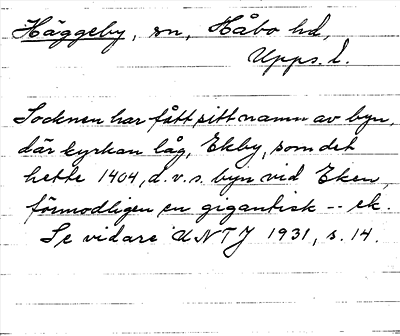 Häggeby, sn, Håbo hd,
Upps. l.
Socknen har fått sitt namn av byn,
där kyrkan låg, Ekby, som det
hette 1404, d.v.s. byn vid Eken,
förmodligen en gigantisk -- ek.
Se vidare UNT 1931, s. 14.